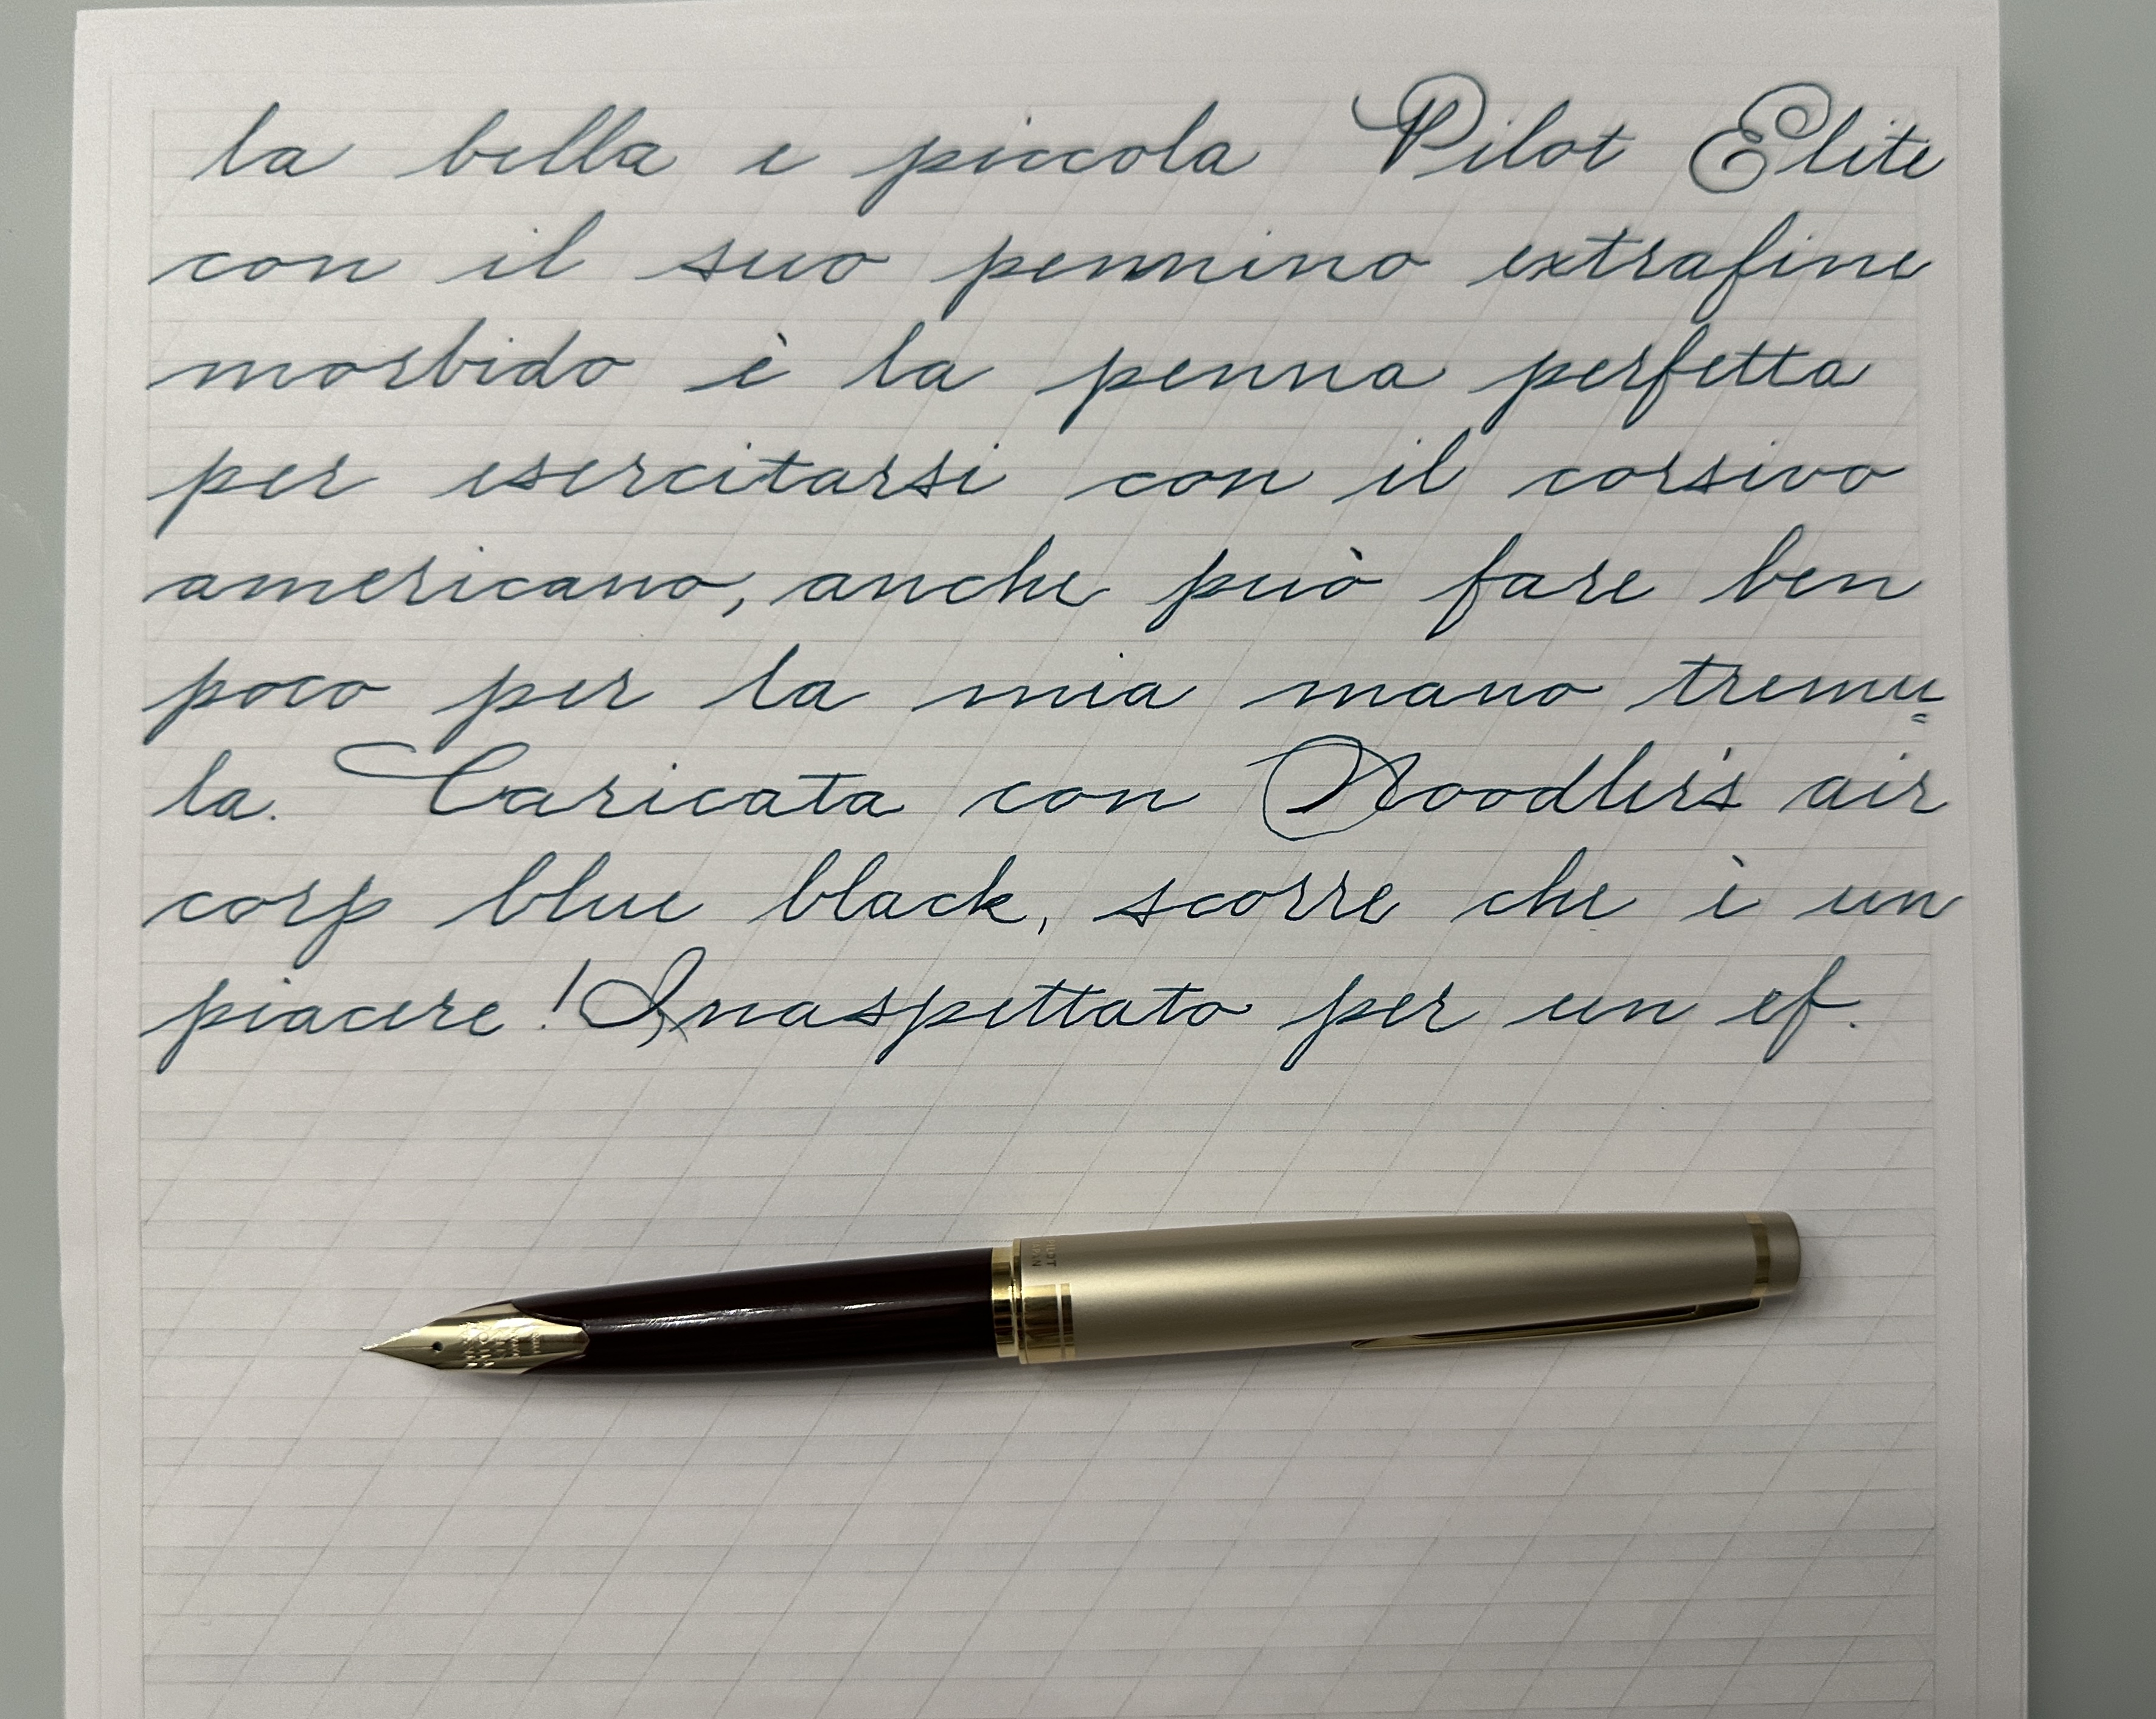 la bella e piccola Pilot Elite
con il suo pennino extrafine
morbido è la penna perfetta
per esercitarsi con il corsivo
americano, anche può fare ben
poco per la mia mano tremu=
la. Caricata con Noodler's air
corp blue black, scorre che è un
piacere! Inaspettato per un ef.
PILOT
JAPAN